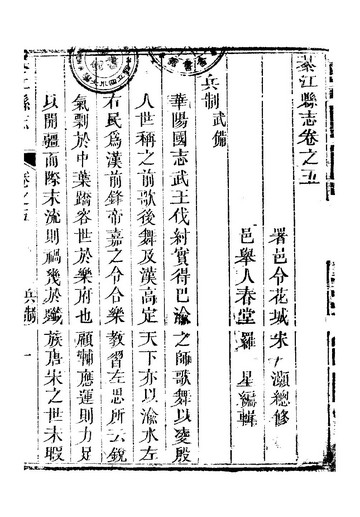 綦江縣志卷之五
署邑令花城宋 灝總修
邑舉人春堂羅 星編輯
兵制武備
華陽國志武王伐紂實得巴渝之師歌舞以凌殷
人世稱之前歌後舞及漢高定天下亦以渝水左
右民為漢前鋒帝嘉之令合樂教習左思所云銳
氣剽於中葉蹻容世於樂府也顧𩏂應運則力足
以開疆而際末流則禍幾於殲族唐宋之世未暇
卷之五 兵制 一